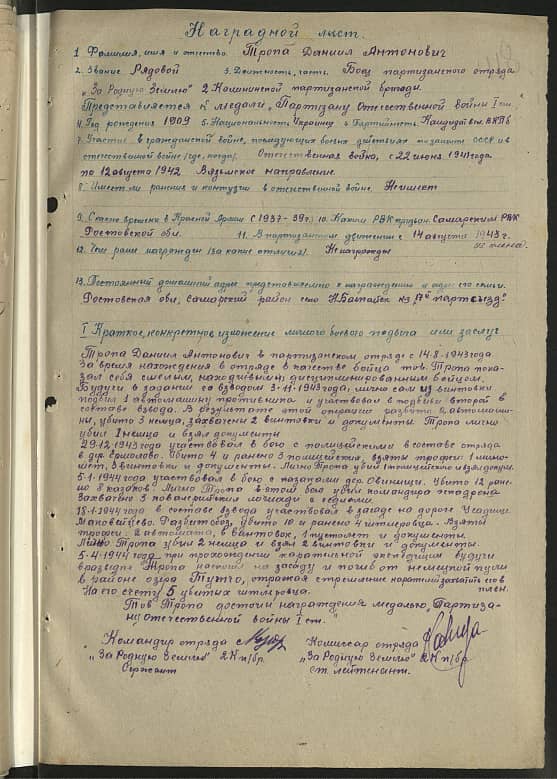 Наградной лист.
1. Фамилия, имя и отчество Тропа Даниил Антонович
2. Звание Рядовой 3. Должность, часть. Боец партизанского отряда
„За Родную Землю" 2 Калининской партизанской бригады.
Представляется к медали „Партизану Отечественной войны I ст."
4. Год рождения 1909 5. Национальность Украинец 6. Партийность Кандидат ВКПб
7. Участие в гражданской войне, последующих боевых действиях по защите СССР и в
отечественной войне (где, когда). Отечественная война, с 22 июня 1941 года
по 12 августа 1942 Вяземское направление.
8. Имеет ли ранения и контузии в отечественной войне. Не имеет
9. С какого времени в Красной Армии С 1937-39г. 10. Каким РВК призван. Самарским РВК
Ростовской обл. 11. В партизанском движении с 14 августа 1943 г.
из плена.
12. Чем ранее награжден (за какие отличия). Не награжден
13. Постоянный домашний адрес представляемого к награждению и адрес его семьи.
Ростовская обл, Самарский район село Н.Батайск к-з „17й партсъезд"
I Краткое, конкретное изложение личного боевого подвига или заслуг
Тропа Даниил Антонович в партизанском отряде с 14.8-1943 года.
За время нахождения в отряде в качестве бойца тов. Тропа пока-
зал себя смелым, находчивым, дисциплинированным бойцом.
Будучи в задании со взводом 3-11-1943 года, лично сам из винтовки
подбил 1 автомашину противника и участвовал в подбое второй в
составе взвода. В результате этой операции разбито 2 автомаши-
ны, убито 3 немца, захвачены 2 винтовки и документы. Тропа лично
убил 1 немца и взял документы
29.12.1943 года участвовал в бою с полицейскими в составе отряда
в дер. Ермолово. Убито 4 и ранено 3 полицейских, взяты трофеи: 1 мино-
мет, 3 винтовки и документы. Лично Тропа убил 1 полицейского и взял докум.
5-1-1944 года участвовал в бою с казаками дер. Овиницы. Убито 12 ране-
но 8 казаков. Лично Тропа в этом бою убил командира эскадрона
Захвачено 3 повозки лошади с седлами.
18-1-1944 года в составе взвода участвовал в засаде на дороге
Маковейцево. Разбит обоз, убито 10 и ранено 4 гитлеровца. Взяты
трофеи: 2 автомата, 6 винтовок, 1 пистолет и документы.
Лично Тропа убил 2 немца и взял 2 винтовки и документы.
5-4-1944 года при прохождении карательной экспедиции будучи
в разведке Тропа наскочил на засаду и погиб от немецкой пули
в районе озера отражая стремление карателей захватить его в
плен.
На его счету 5 убитых гитлеровца.
Тов Тропа достоин награждения медалью „Партиза-
ну Отечественной войны I ст."
Командир отряда Комиссар отряда
„За Родную Землю" 2 К п/бр. „За Родную Землю" 2 К п/бр
Сержант ст. лейтенант.